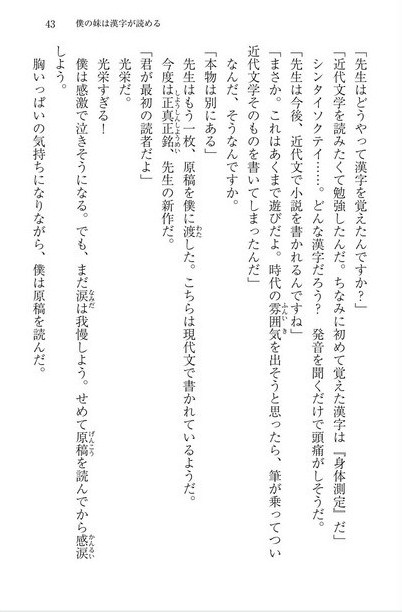 43　僕の妹は漢字が読める
「先生はどうやって漢字を覚えたんですか？」
「近代文学を読みたくて勉強したんだ。ちなみに初めて覚えた漢字は『身体測定』だ」
シンタイソクテイ……。どんな漢字だろう？　発音を聞くだけで頭痛がしそうだ。
「先生は今後、近代文で小説を書かれるんですね」
「まさか。これはあくまで遊びだよ。時代の雰囲気を出そうと思ったら、筆が乗ってつい
近代文学そのものを書いてしまったんだ」
なんだ、そうなんですか。
「本物は別にある」
先生はもう一枚、原稿を僕に渡した。こちらは現代文で書かれているようだ。
今度は正真正銘、先生の新作だ。
「君が最初の読者だよ」
光栄だ。
光栄すぎる！
僕は感激で泣きそうになる。でも、まだ涙は我慢しよう。せめて原稿を読んでから感涙
しよう。
胸いっぱいの気持ちになりながら、僕は原稿を読んだ。